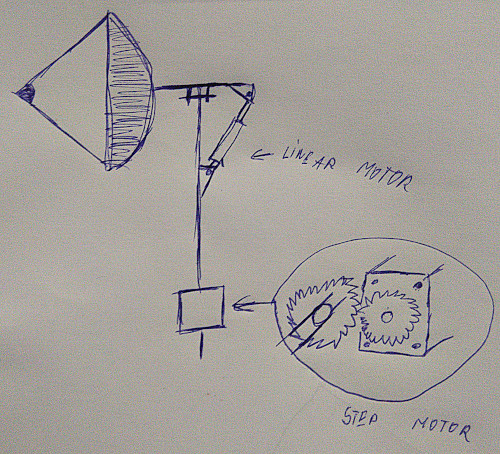 LINEAR MOTOR
STEP MOTOR